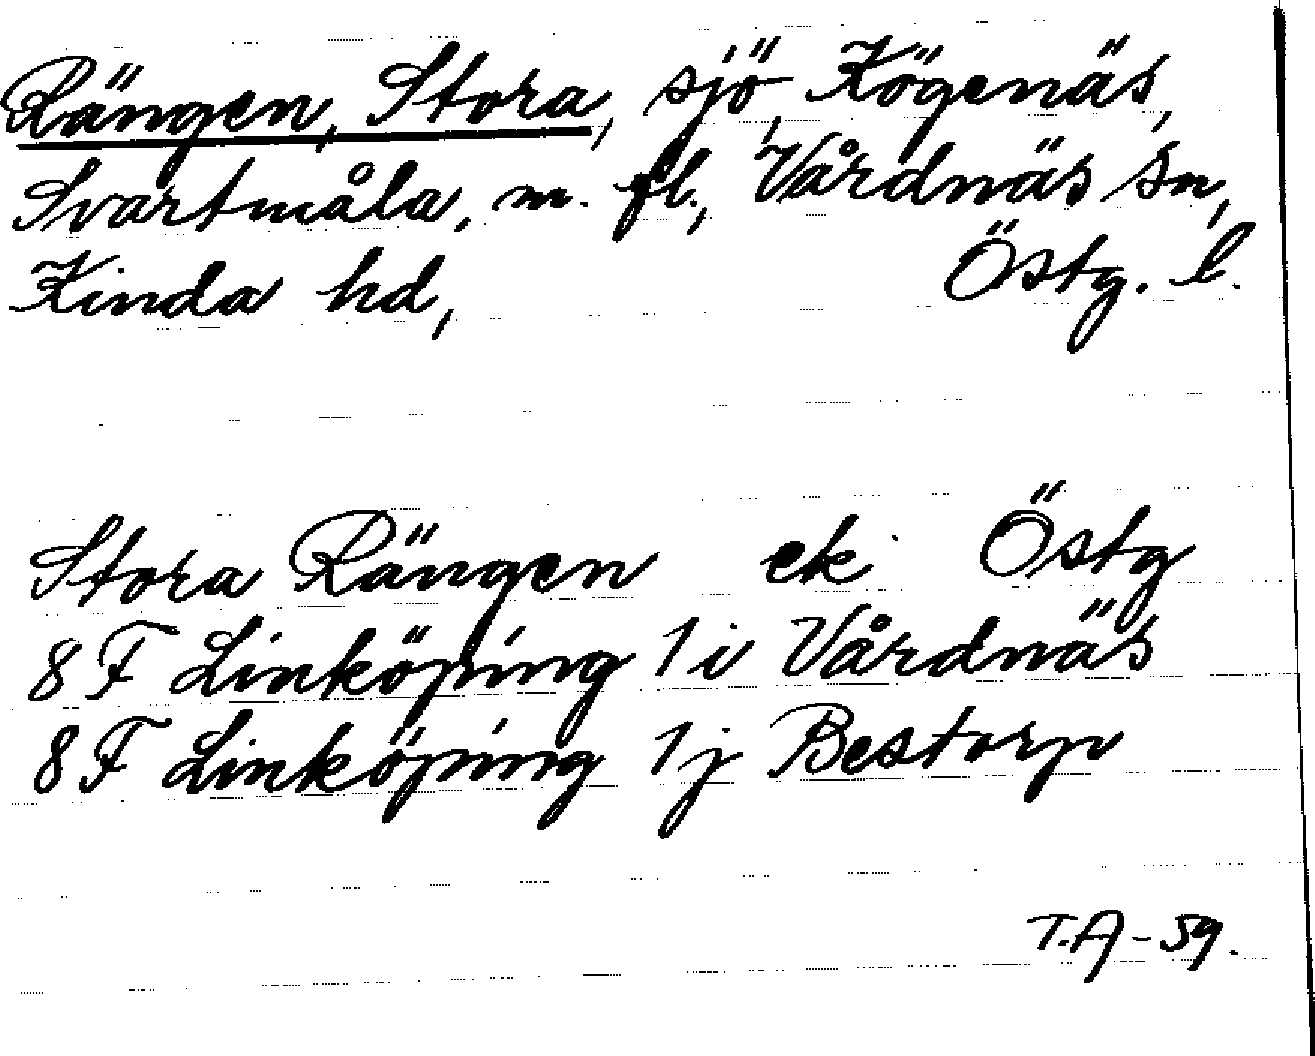 Rängen, Stora, sjö, Kögenäs,
Svartmåla, m. fl., Vårdnäs sn,
Kinda hd, Östg. l.
Stora Rängen ek Östg
8F Linköping 1i Vårdnäs
8F Linköping 1j Bestorp
T.A-59.